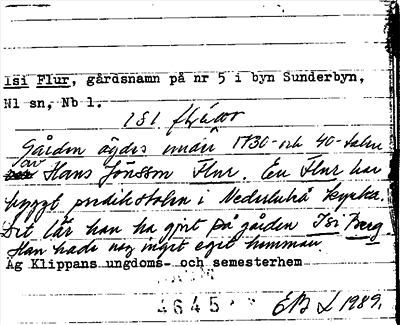 Isi Flur, gårdsnamn på nr 5 i byn Sunderbyn,
Nl sn, Nb l.
ISI
Gården ägdes under 1730- och 40-talen
av Hans Jönsson Flur. En Flur har
byggt predikstolen i Nederluleå kyrka.
Det lär han ha gjort på gården Isi Berg
Han hade nog inget eget hemman.
Äg Klippans ungdoms- och semesterhem
4645
EB L 1989.